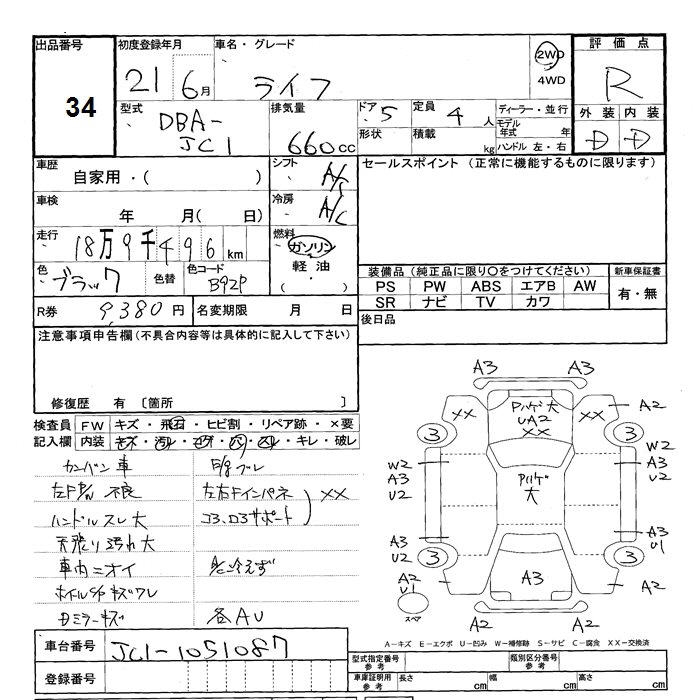 出品番号 初度登録年月 車名・グレード 2WD 評価点
34 21 6月 ライフ 4WD R
型式 排気量 ドア 5 定員 4人 ディーラー・並行 外装 内装
DBA- 660cc 形状 積載 kg モデル年式 年 D D
JC1 ハンドル 左・右
車歴 シフト A/s セールスポイント (正常に機能するものに限ります)
自家用・( )
車検 冷房 A/C
年 月( 日)
走行 燃料
18万9千496km ガソリン
軽油
( )
色 ブラック 色替 色コード B92P
装備品 (純正品に限り○をつけてください) 新車保証書
PS PW ABS エアB AW 有・無
SR ナビ TV カワ
R券 9,380円 名変期限 月 日
後日品
注意事項申告欄(不具合内容等は具体的に記入して下さい)
修復歴 有 〔箇所 〕
検査員 FW キズ・飛石・ヒビ割・リペア跡・×要
記入欄 内装 キズ・汚レ・コゲ・穴・スレ・キレ・破レ
カンバン車 F/gブレ
不良 左右Fインパネ XX
ハンドルスレ大 コア、ロアサポート
天張り汚れ大
車内ニオイ A/c冷えず
キズワレ
ドミラーキズ 各AU
車台番号 JC1-1051087
登録番号
A3 A3
XX Pハゲ大 XX A2
UA2
XX
3 3
W2 W2
A3 Pハゲ A3
U2 大 U2
A3 A3
U2 U1
3 3
A2 A3 A2
U1
スペア A2 A2
A−キズ E−エクボ U−凹み W−補修跡 S−サビ C−腐食 XX−交換済
型式指定番号 参考 類別区分番号 参考
車庫証明用 参考 長さ cm 幅 cm 高さ cm